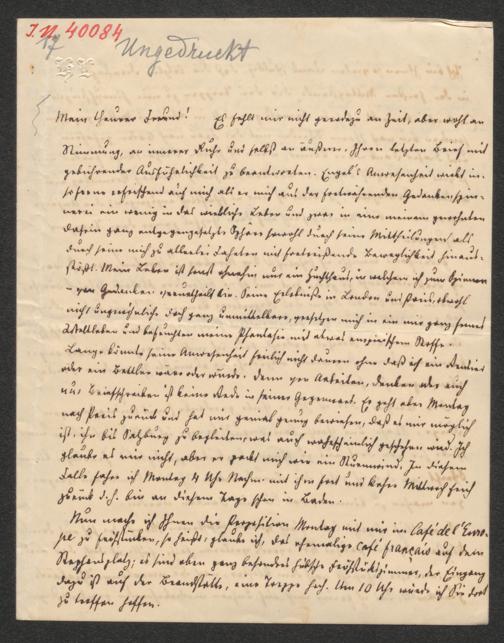 I.N. 40084
17 Ungedruckt
Mein theurer Freund! Es fehlt mir nicht geradezu an Zeit, aber wohl an
Stimmung, an innerer Ruhe und selbst an äußerer, Ihren letzten Brief mit
gebührender Ausführlichkeit zu beantworten. Engel's Anwesenheit wirkt in-
soferne erfrischend auf mich als er mich aus der fortwährenden Gedankenspin-
nerei ein wenig in das wirkliche Leben und zwar in eine meinem gewohnten
Dasein ganz entgegengesetzte Sphäre sowohl durch seine Mittheilungen als
durch seine mich zu allerlei Fahrten mit fortreißende Beweglichkeit hinaus-
stößt. Mein Leben ist sonst ohnehin nur ein Zuchthaus, in welchem ich zum Spinnen
– von Gedanken verurtheilt bin. Seine Erlebnisse in London und Paris, obwohl
nicht ungewöhnlich doch ganz unmittelbare, versetzen mich in ein mir ganz fernes
Weltleben und befruchten meine Phantasie mit etwas empirischem Stoffe.
Lange könnte seine Anwesenheit freilich nicht dauern ohne daß ich ein Rentier
oder ein Bettler wäre oder würde. Denn von Arbeiten, Denken oder auch
nur Briefschreiben ist keine Rede in seiner Gegenwart. Er geht aber Montag
nach Paris zurück und hat mir genial genug bewiesen, daß es nur möglich
ist, ihn bis Salzburg zu begleiten, was auch wahrscheinlich geschehen wird. Ich
glaube es mir nicht, aber er packt mich wie ein Sturmwind. In diesem
Falle fahre ich Montag 4 Uhr Nachm. mit ihm fort und kehre Mittwoch früh
zurück d.h. bin an diesem Tage schon in Baden.
Nun mache ich Ihnen die Proposition Montag mit mir im Café de l'Euro-
pe zu frühstücken, so heißt, glaube ich, das ehemalige Café français auf dem
Stephansplatz; es sind oben ganz besonders hübsche Frühstückzimmer, der Eingang
dazu ist auf der Brandstatt, eine Treppe hoch. Um 10 Uhr würde ich Sie dort
zu treffen hoffen.